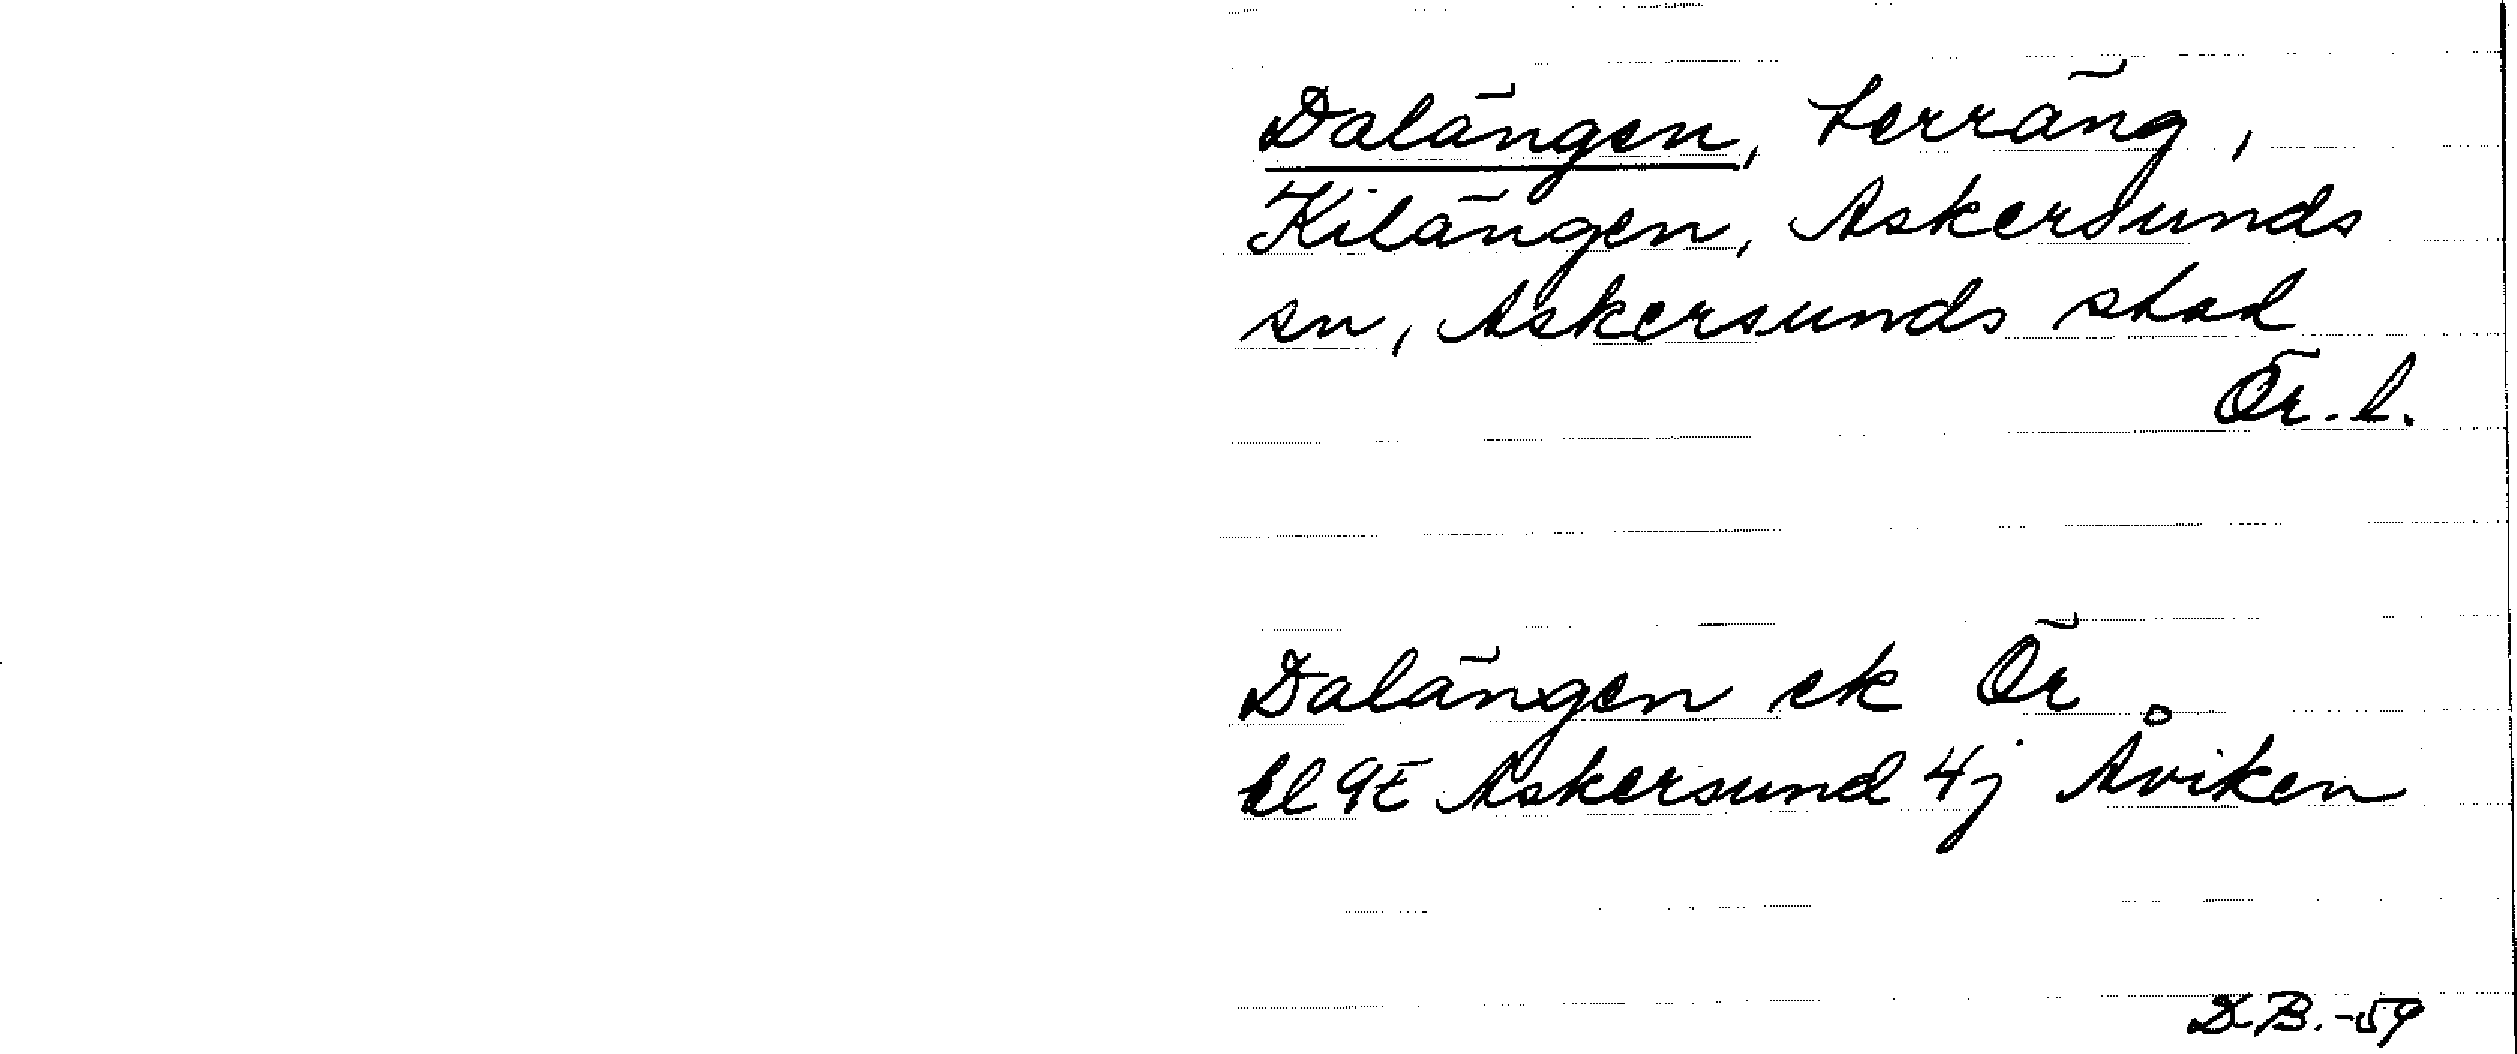 Dalängen, terräng,
Kilängen, Askersunds
sn, Askersunds stad
Ör. l.
Dalängen ek Ör
bl 9E Askersund 4j Åviken
D.B.-59